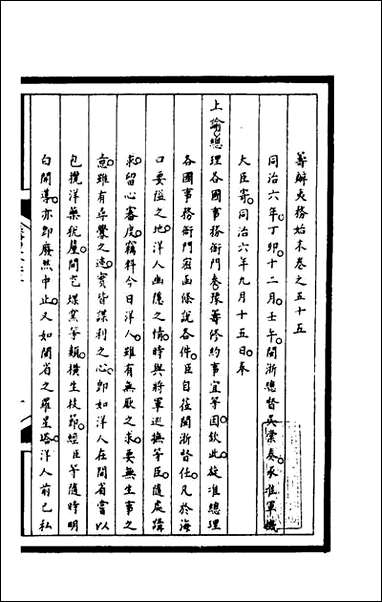 籌辦夷務始末卷之五十五
同治六年丁卯十二月壬午閩浙總督吳棠奏承准軍機
大臣寄同治六年九月十五日奉
上諭總理各國事務衙門奏豫籌修約事宜等因欽此旋准總理
各國事務衙門密函條說各件臣自蒞閩浙督任凡於海
口要隘之地洋人幽隱之情時與將軍巡撫等臣隨處講
求留心審度竊料今日洋人雖有無厭之求要無生事之
意雖有尋釁之迹實皆謀利之心即如洋人在閩省嘗以
包攬洋藥扰釐間乞煤窯等類橫生枝節經臣等隨時明
白開導亦即廢然中止又如閩省之羅星塔洋人前已私